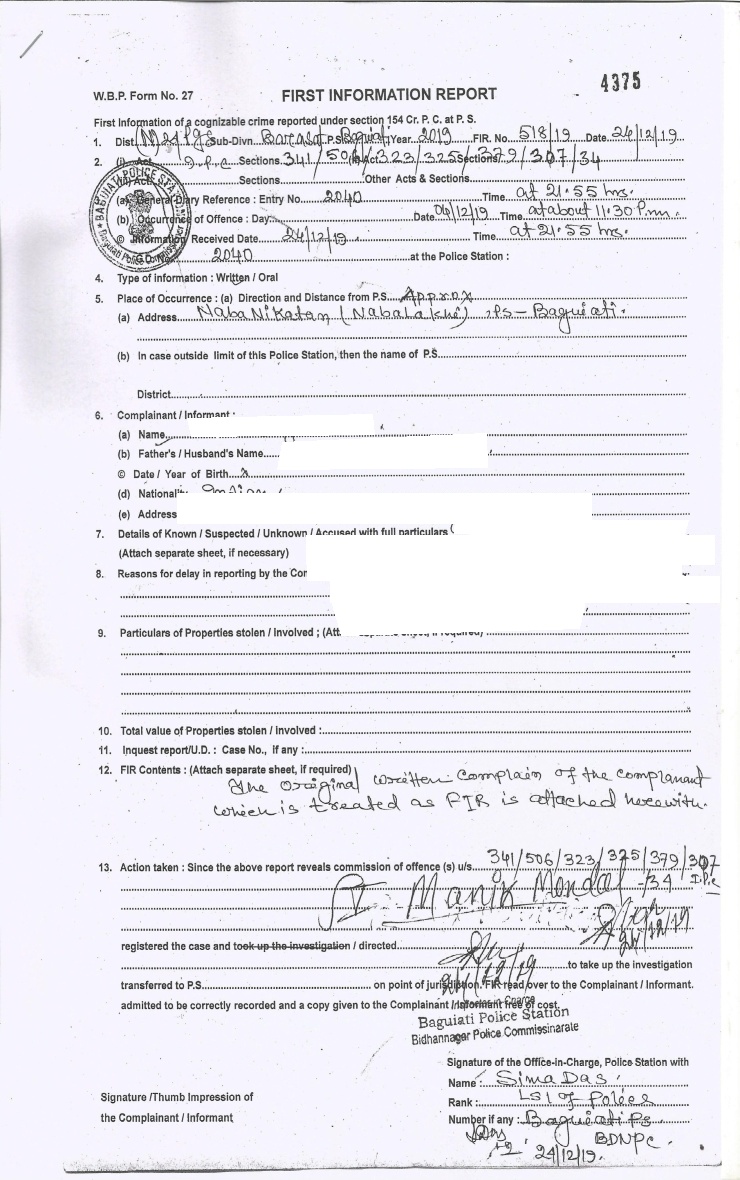 4375
W.B.P. Form No. 27 FIRST INFORMATION REPORT
First Information of a cognizable crime reported under section 154 Cr. P. C. at P. S.
1. Dist. Sub-Divn. Barasat P.S. Baguiati Year 2019 FIR. No. 518/19 Date 24/12/19
2. (i) Act I.P.C Sections 341/506/323/325/379/307/34
(ii) Act Sections Other Acts & Sections
(a) General Diary Reference : Entry No. 2040 Time at 21.55 hrs.
(b) Occurrence of Offence : Day Date 06/12/19 Time at about 11.30 P.m.
© Information Received Date 24/12/19 Time at 21.55 hrs.
2040 at the Police Station :
BAGUIATI POLICE STATION
4. Type of information : Written / Oral
5. Place of Occurrence : (a) Direction and Distance from P.S. Approx
(a) Address Naba Nikatan (Nabalakshi) PS - Baguiati.
(b) In case outside limit of this Police Station, then the name of P.S.
District
6. Complainant / Informant :
(a) Name
(b) Father's / Husband's Name
© Date / Year of Birth
(d) National
(e) Address
7. Details of Known / Suspected / Unknown / Accused with full particulars
(Attach separate sheet, if necessary)
8. Reasons for delay in reporting by the
9. Particulars of Properties stolen / Involved ;
10. Total value of Properties stolen / involved :
11. Inquest report/U.D. : Case No., if any :
12. FIR Contents : (Attach separate sheet, if required)
The original written complain of the complanant
which is treated as FIR is attached herewith.
13. Action taken : Since the above report reveals commission of offence (s) u/s. 341/506/323/325/379/307
/34 I.P.C
SI Manik Mondal
24/12/19
registered the case and took up the investigation / directed
24/12/19 to take up the investigation
transferred to P.S. on point of jurisdiction. FIR read over to the Complainant / Informant.
admitted to be correctly recorded and a copy given to the Complainant / Informant free of cost.
Baguiati Police Station
Bidhannagar Police Commissinarate
Signature of the Office-in-Charge, Police Station with
Name : Sima Das
Signature /Thumb Impression of
the Complainant / Informant
Rank : LSI of Police
Number if any : Baguiati Ps
BDNPC.
24/12/19.